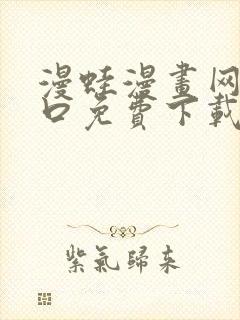 漫蛙漫畫网
口免費下載
紫氣歸來